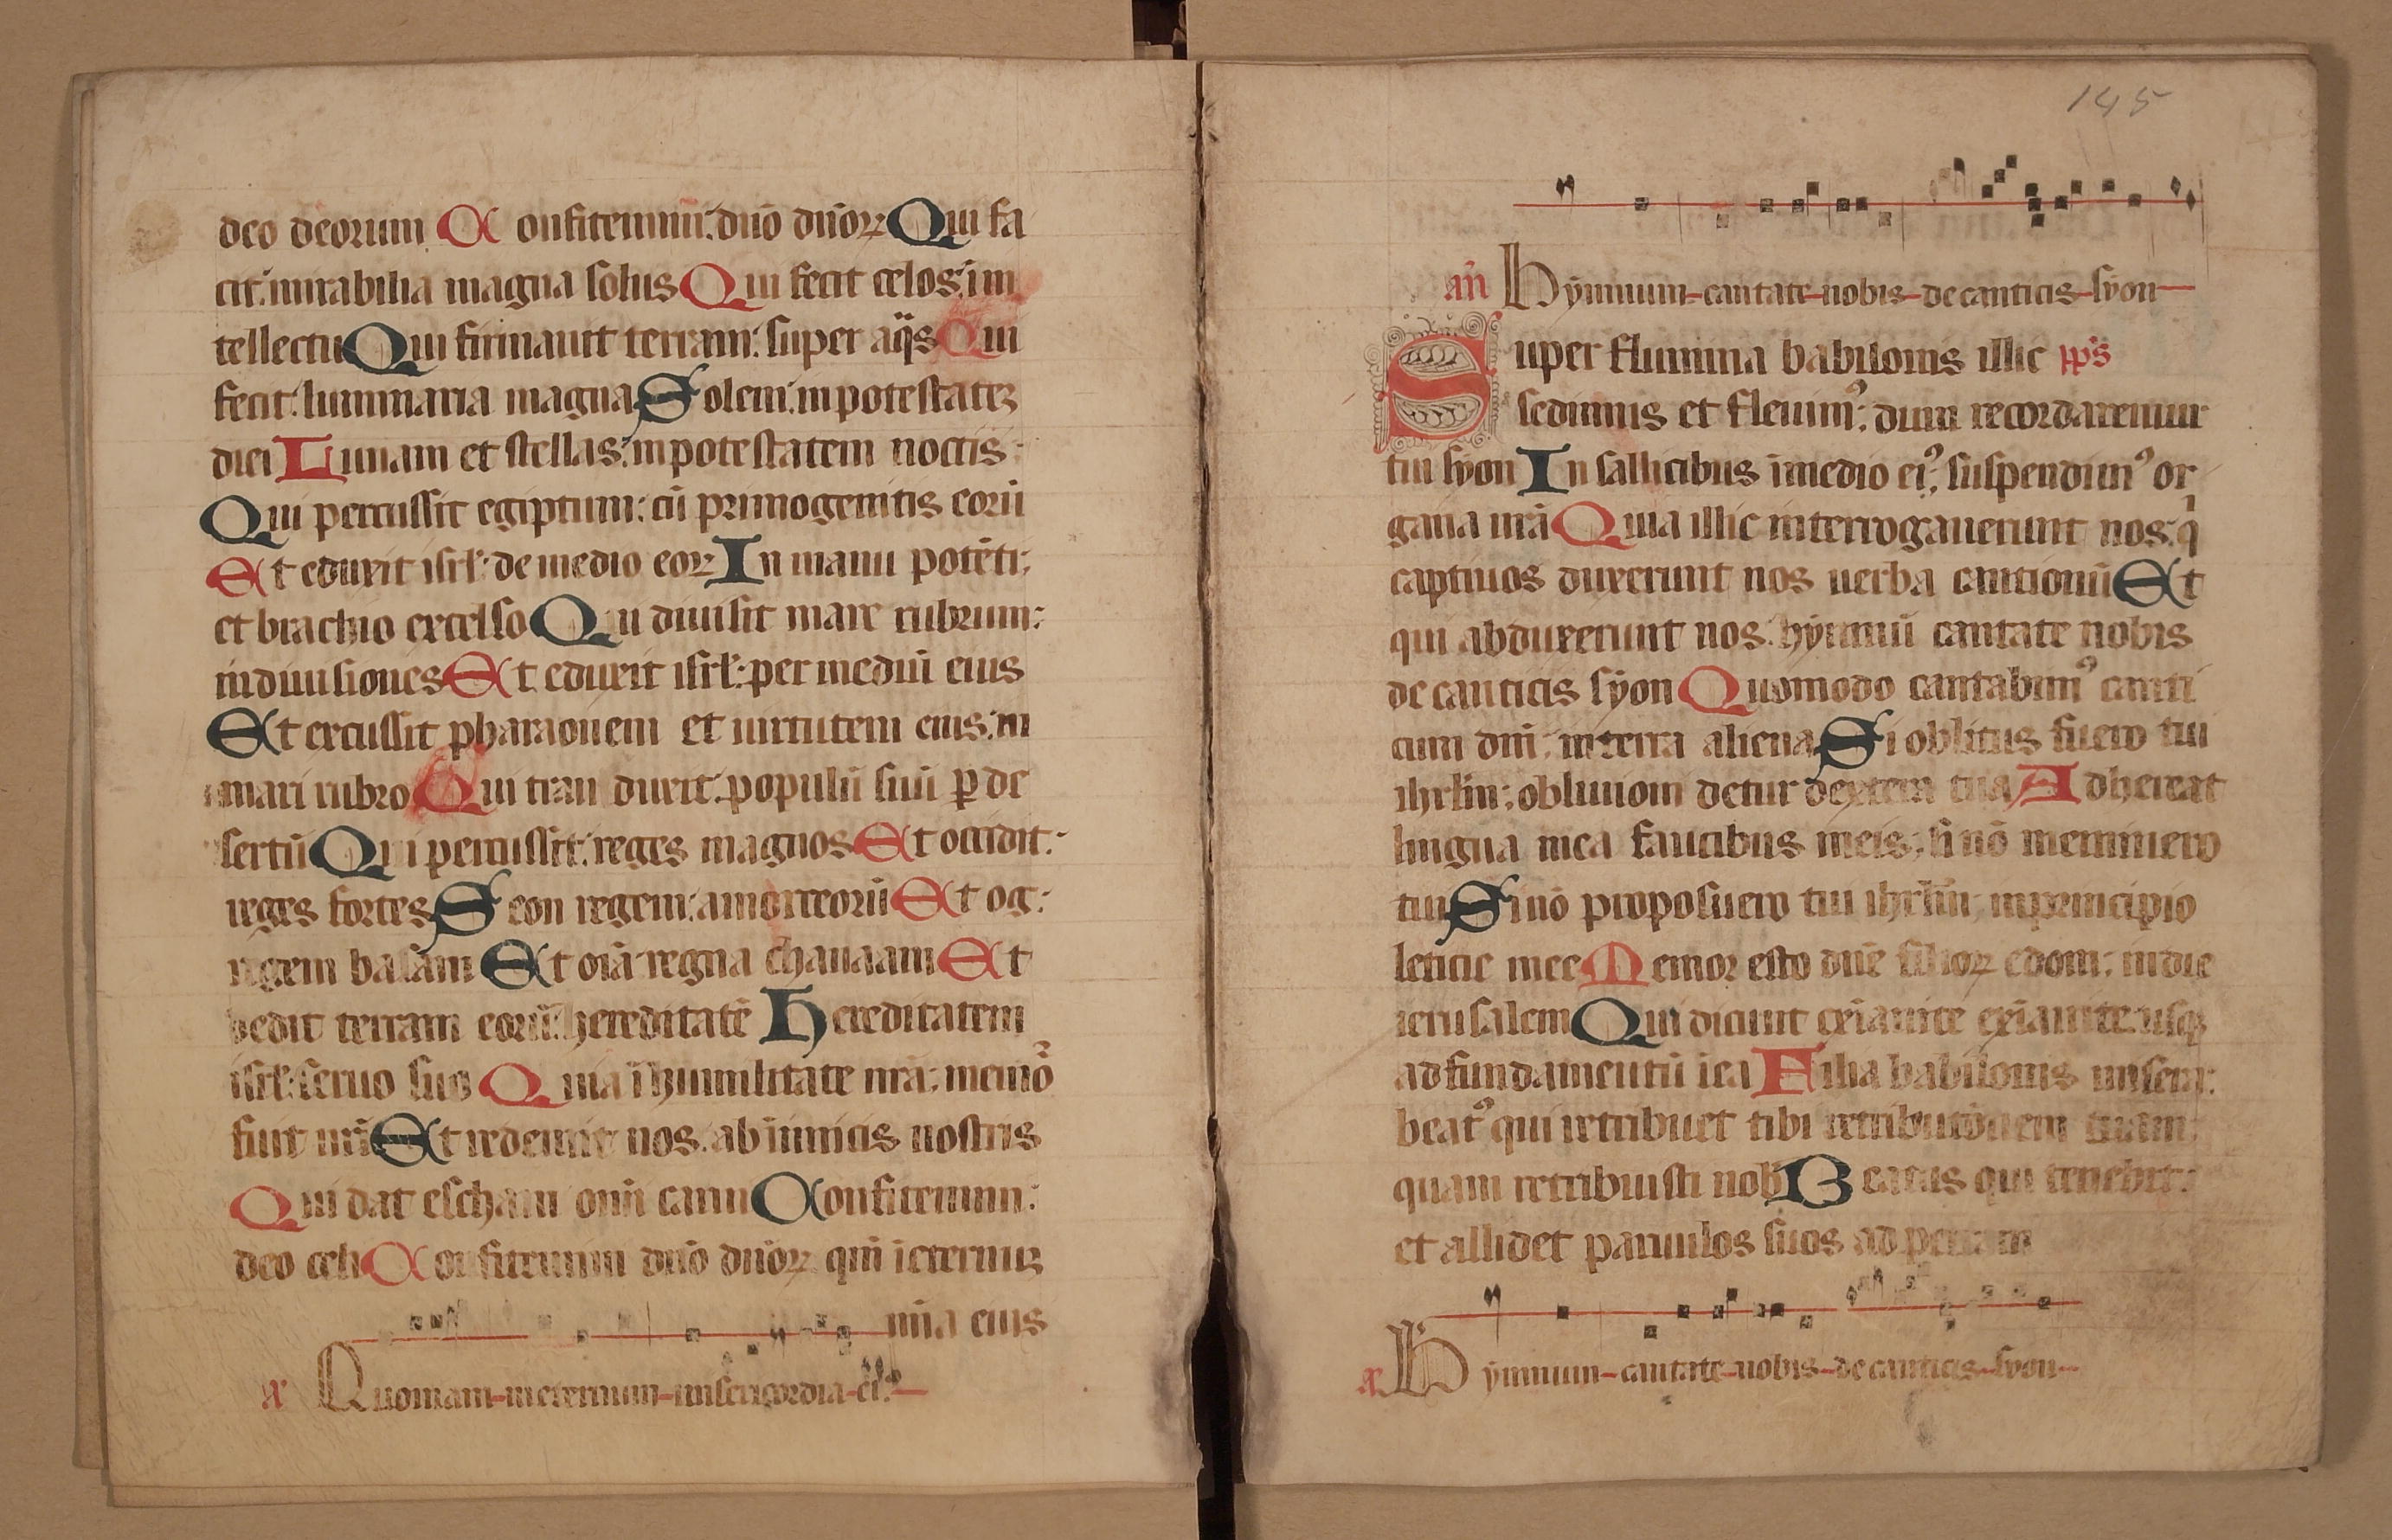 deo deorum Confitemini: dn̄o dn̄oꝝ Qui fa
cit: mirabilia magna solus Qui fecit celos: i̅ in
tellectu Qui firmauit terram: super aq̈s Qui
fecit: luminaria magna Solem: in potestateꝫ
diei Lunam et stellas: in potestatem noctis:
Qui percussit egiptum: cū primogenitis eorū
Et eduxit isrl̄: de medio eoꝝ In manu potēti:
et brachio excelso Qui diuisit mare rubrum:
in diuisiones Et eduxit isrl̄: per mediū eius
Et excussit pharaonem et uirtutem eius: in
mari rubro Qui tran duxit: populū suū ꝑ de
sertū Qui percussit: reges magnos Et occidit:
reges fortes Seon regem: amorreorū Et og:
regem basam Et oīa regna chanaam Et
dedit terram eorū: hereditatē Hereditatem
isrl̄: seruo suo Quia ī humilitate nr̄a: memor̄
fuit nr̄i Et redemit nos: ab inimicis nostris
Qui dat escham om̄i carni Confitemini:
deo celi Confitemini dn̄o dn̄oꝝ qm̄ ī eternuꝫ
mīa eius
a Quoniam in eternum misericordia eiꝰ
145
an̄ Hẏmnum cantate nobis de canticis syon
Super flumina babilonis illic pp̄s
sedimus et fleuimꝰ: dum recordaremur
tui syon In sallicibus ī medio eiꝰ: suspendimꝰ or
gana nr̄a Quia illic interrogauerunt nos: qͥ
captiuos duxerunt nos uerba cantionū Et
qui abduxerunt nos: hẏmnū cantate nobis
de canticis sẏon Quomodo cantabimꝰ canti
cum dn̄i: in terra aliena Si oblitus fuero tui
ihrl̄m: obliuioni detur dextera tua Adhereat
lingua mea faucibus meis: si nō meminero
tui Si nō proposuero tui ihrl̄m: in principio
leticie mee Memor esto dn̄e filioꝝ edom: in die
ierusalem Qui dicunt exīanite exīanite: usqꝫ
ad fundamentū ī ea Filia babilonis misera:
beatꝰ qui retribuet tibi retributōnem tuam:
quam retribuisti nob̄ Beatus qui tenebit:
et allidet paruulos suos ad petram
a Hẏmnum cantate nobis de canticis syon